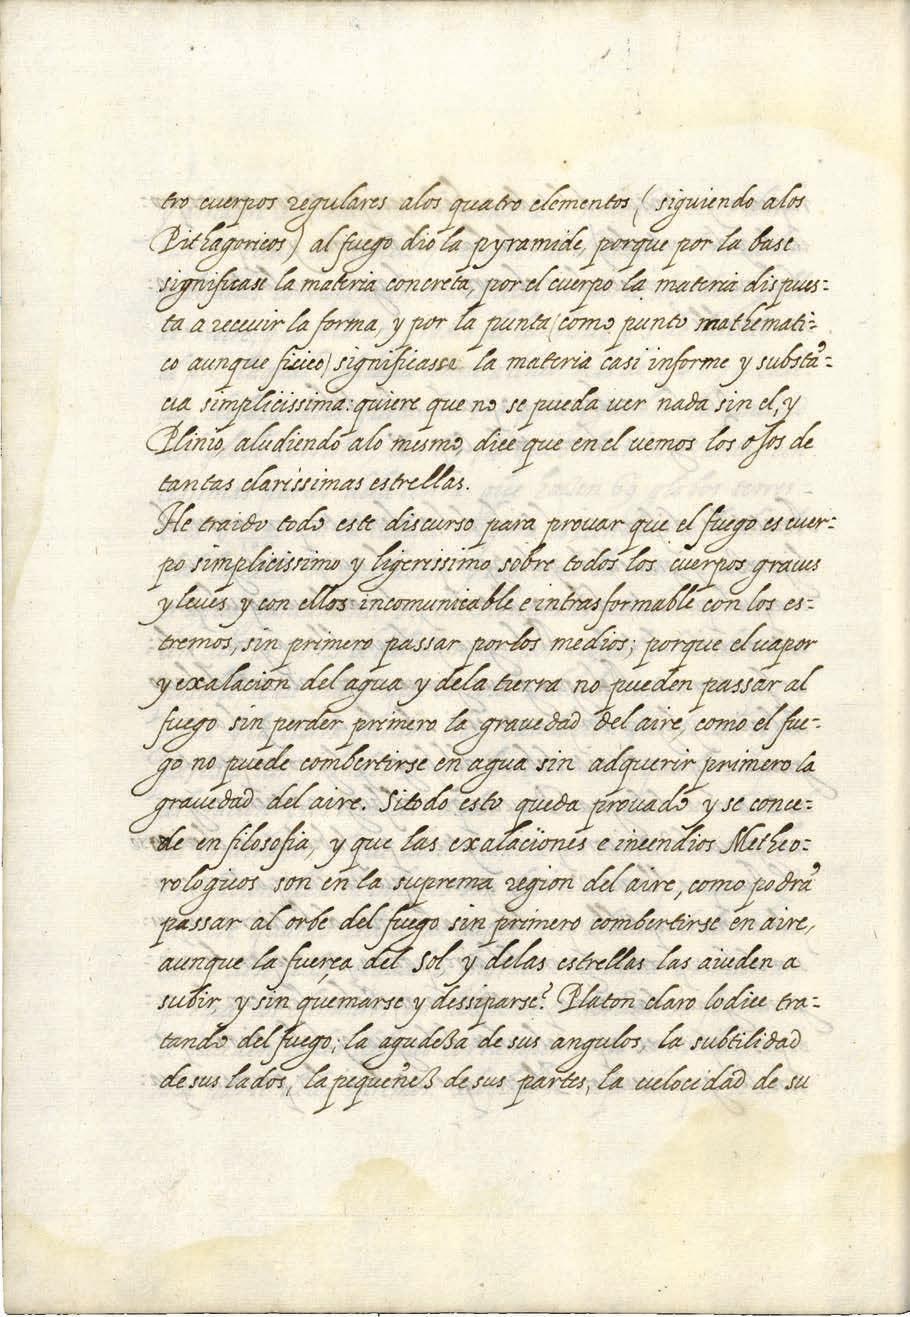 tro cuerpos regulares alos quatro elementos ( siguiendo alos
Pithagoricos) al fuego dio la pyramide, porque por la base
significase la materia concreta, por el cuerpo la materia dispues-
ta a recevir la forma, y por la punta (como punto mathemati-
co aunque ficico) significasse la materia casi informe y substã-
cia simplicissima: quiere que no se pueda ver nada sin el, y
Plinio, aludiendo alo mesmo, dice que en el vemos los ojos de
tantas clarissimas estrellas.
He traido todo este discurso para provar que el fuego es cuer-
po simplicissimo y ligerissimo sobre todos los cuerpos graves
y leves, y con ellos incomunicable e intrasformable con los es-
tremos, sin primero passar por los medios; porque el vapor
y exalacion del agua y dela tierra no pueden passar al
fuego sin perder primero la gravedad del aire, como el fue-
go no puede combertirse en agua sin adquerir primero la
gravedad del aire. Si todo esto queda provado y se conce-
de en filosofia, y que las exalaciones e incendios Metheo-
rologicos son en la suprema region del aire, como podrã
passar al orbe del fuego sin primero combertirse en aire,
aunque la fuerça del Sol y delas estrellas las aiuden a
subir, y sin quemarse y dessiparse? Platon claro lo dice tra-
tando del fuego; la agudeza de sus angulos, la subtilidad
de sus lados, la pequeñez de sus partes, la velocidad de su